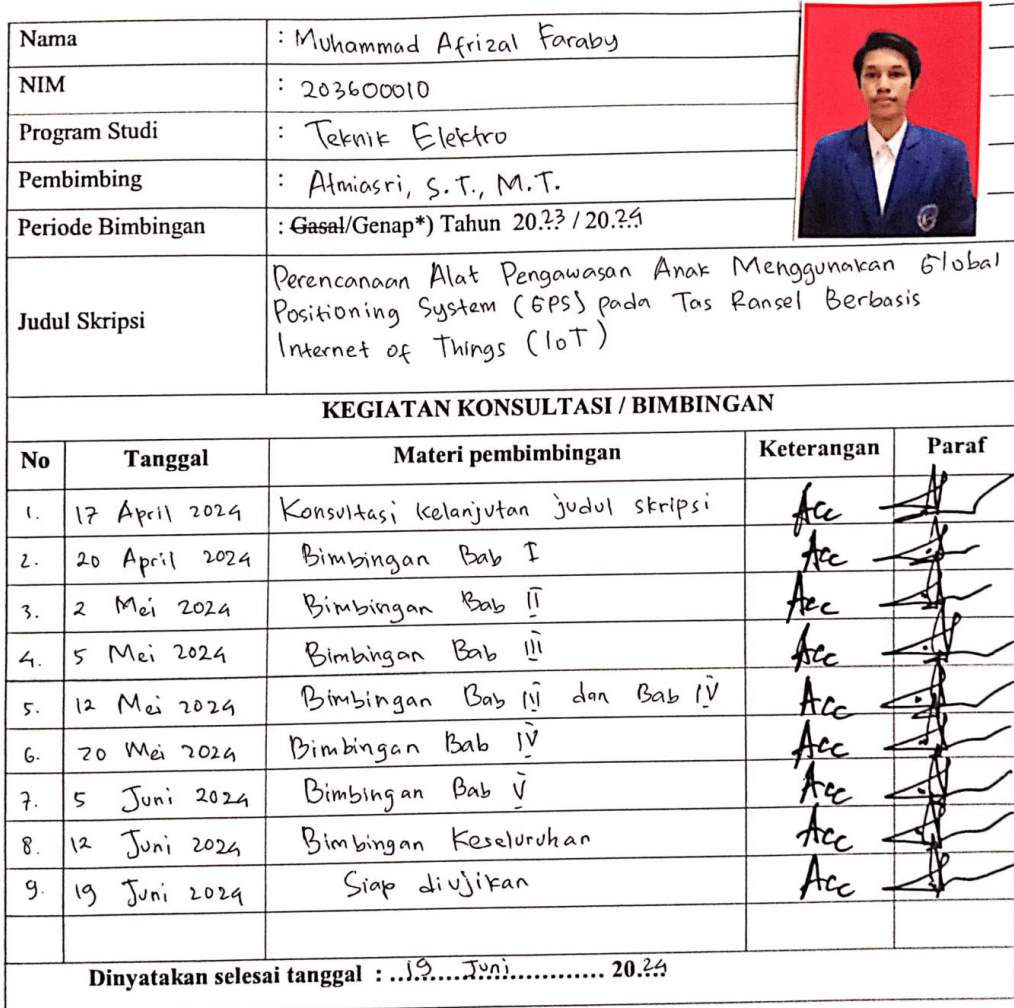 Nama : Muhammad Afrizal Faraby
NIM : 203600010
Program Studi : Teknik Elektro
Pembimbing : Atmiasri, S.T., M.T.
Periode Bimbingan : Gasal/Genap*) Tahun 20.23 / 20.24
Judul Skripsi
Perencanaan Alat Pengawasan Anak Menggunakan Global
Positioning System (GPS) pada Tas Ransel Berbasis
Internet of Things (IoT)
KEGIATAN KONSULTASI / BIMBINGAN
No Tanggal Materi pembimbingan Keterangan Paraf
1. 17 April 2024 Konsultasi kelanjutan judul skripsi Acc
2. 20 April 2024 Bimbingan Bab I Acc
3. 2 Mei 2024 Bimbingan Bab II Acc
4. 5 Mei 2024 Bimbingan Bab III Acc
5. 12 Mei 2024 Bimbingan Bab IV dan Bab IV Acc
6. 20 Mei 2024 Bimbingan Bab IV Acc
7. 5 Juni 2024 Bimbingan Bab V Acc
8. 12 Juni 2024 Bimbingan Keseluruhan Acc
9. 19 Juni 2024 Siap diujikan Acc
Dinyatakan selesai tanggal : ..19.....Juni............. 20.24